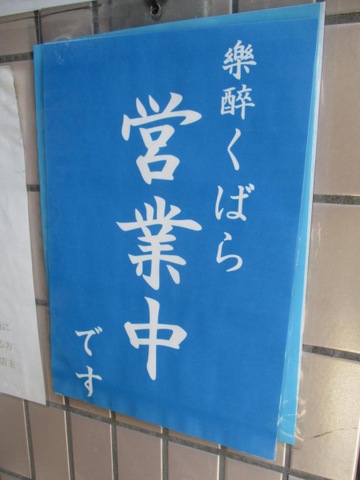 樂酔くばら
営業中
です